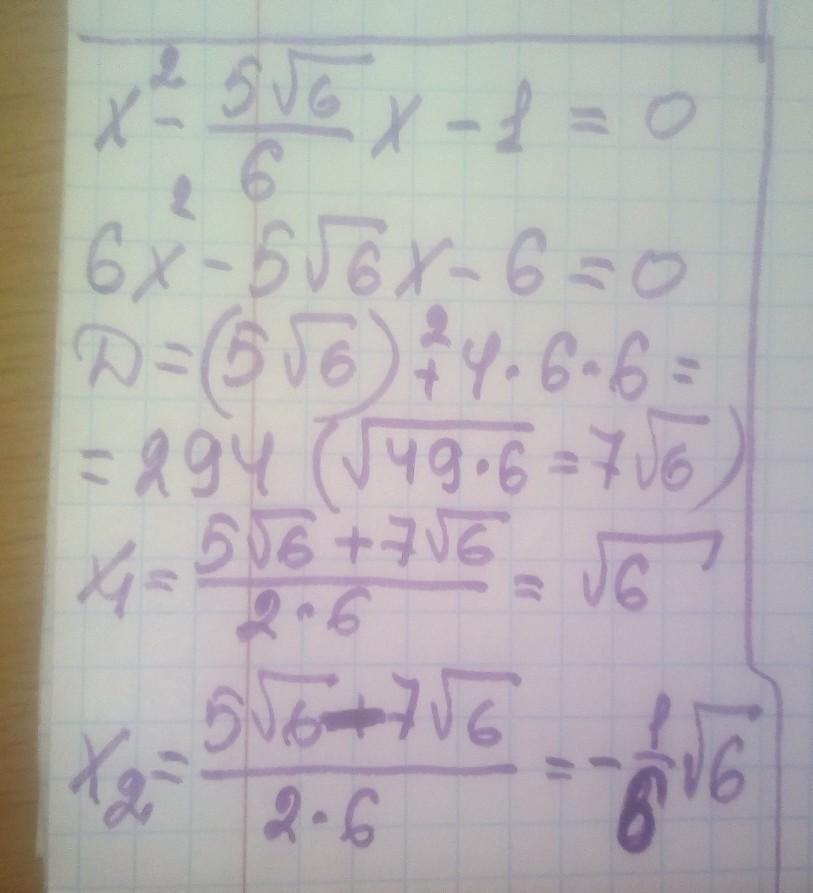 x² - 5√6/6 x - 1 = 0
6x² - 5√6 x - 6 = 0
D = (5√6)² + 4·6·6 =
= 294 (√49·6 = 7√6)
x₁ = 5√6 + 7√6 / 2·6 = √6
x₂ = 5√6 - 7√6 / 2·6 = - 1/6 √6